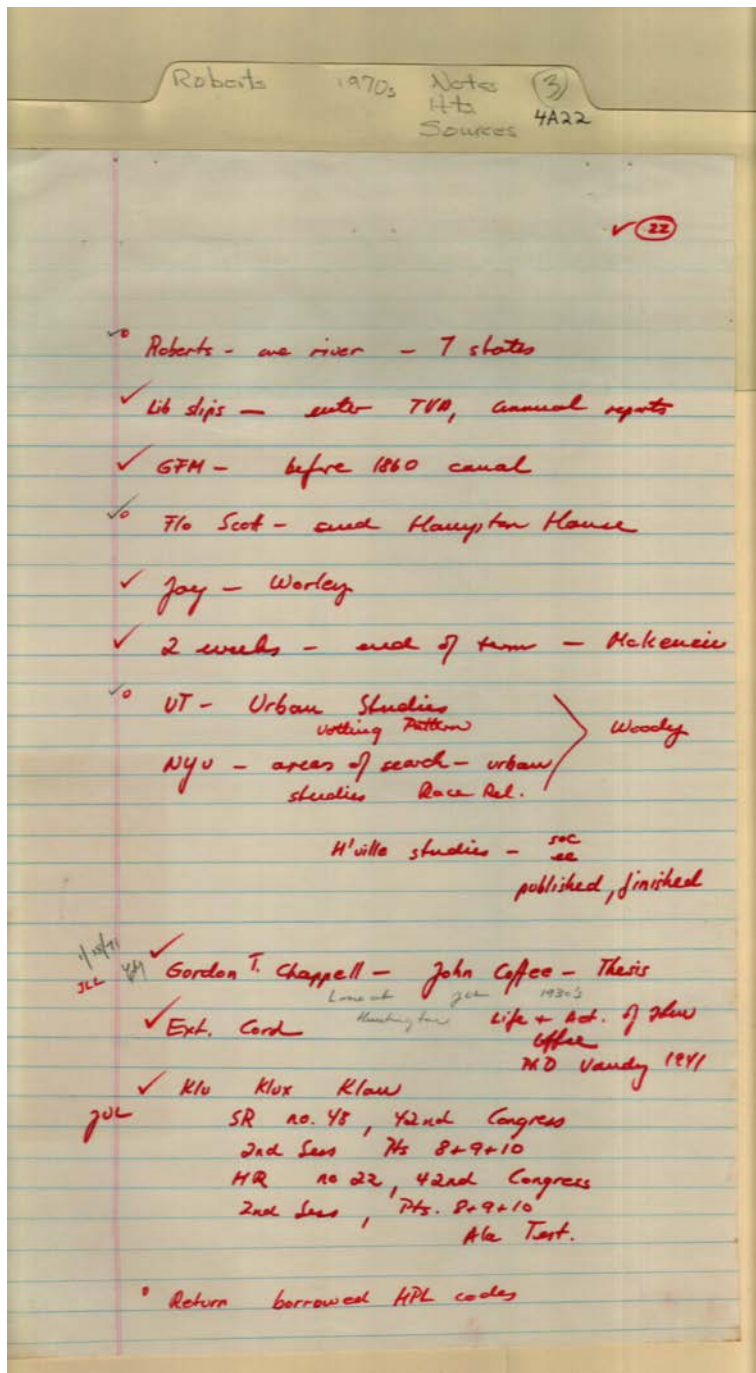 Roberts 1970s Notes 3
Hts 4A22
Sources
✓ 22
Roberts - one river - 7 states
Lib slips - enter TVA, annual reports
GFM - before 1860 canal
Flo Scott - and Hampton House
Joy - Worley
2 weeks - end of term - McKenzie
UT - Urban Studies
Votting Pattern Woody
NYU - areas of search - urban
studies Race Rel.
H'ville studies - soc
ec
published, finished
Gordon T. Chappell - John Coffee - Thesis
JLL
Loane at JCL 1930's
Huntington
Ext. Cord Life + Act. of John
Coffee
PhD Vandy 1941
Klu Klux Klan
SR no. 48, 42nd Congress
2nd Sess Pts 8+9+10
HR no 22, 42nd Congress
2nd Sess, Pts. 8+9+10
Ala Test.
Return borrowed HPL codes